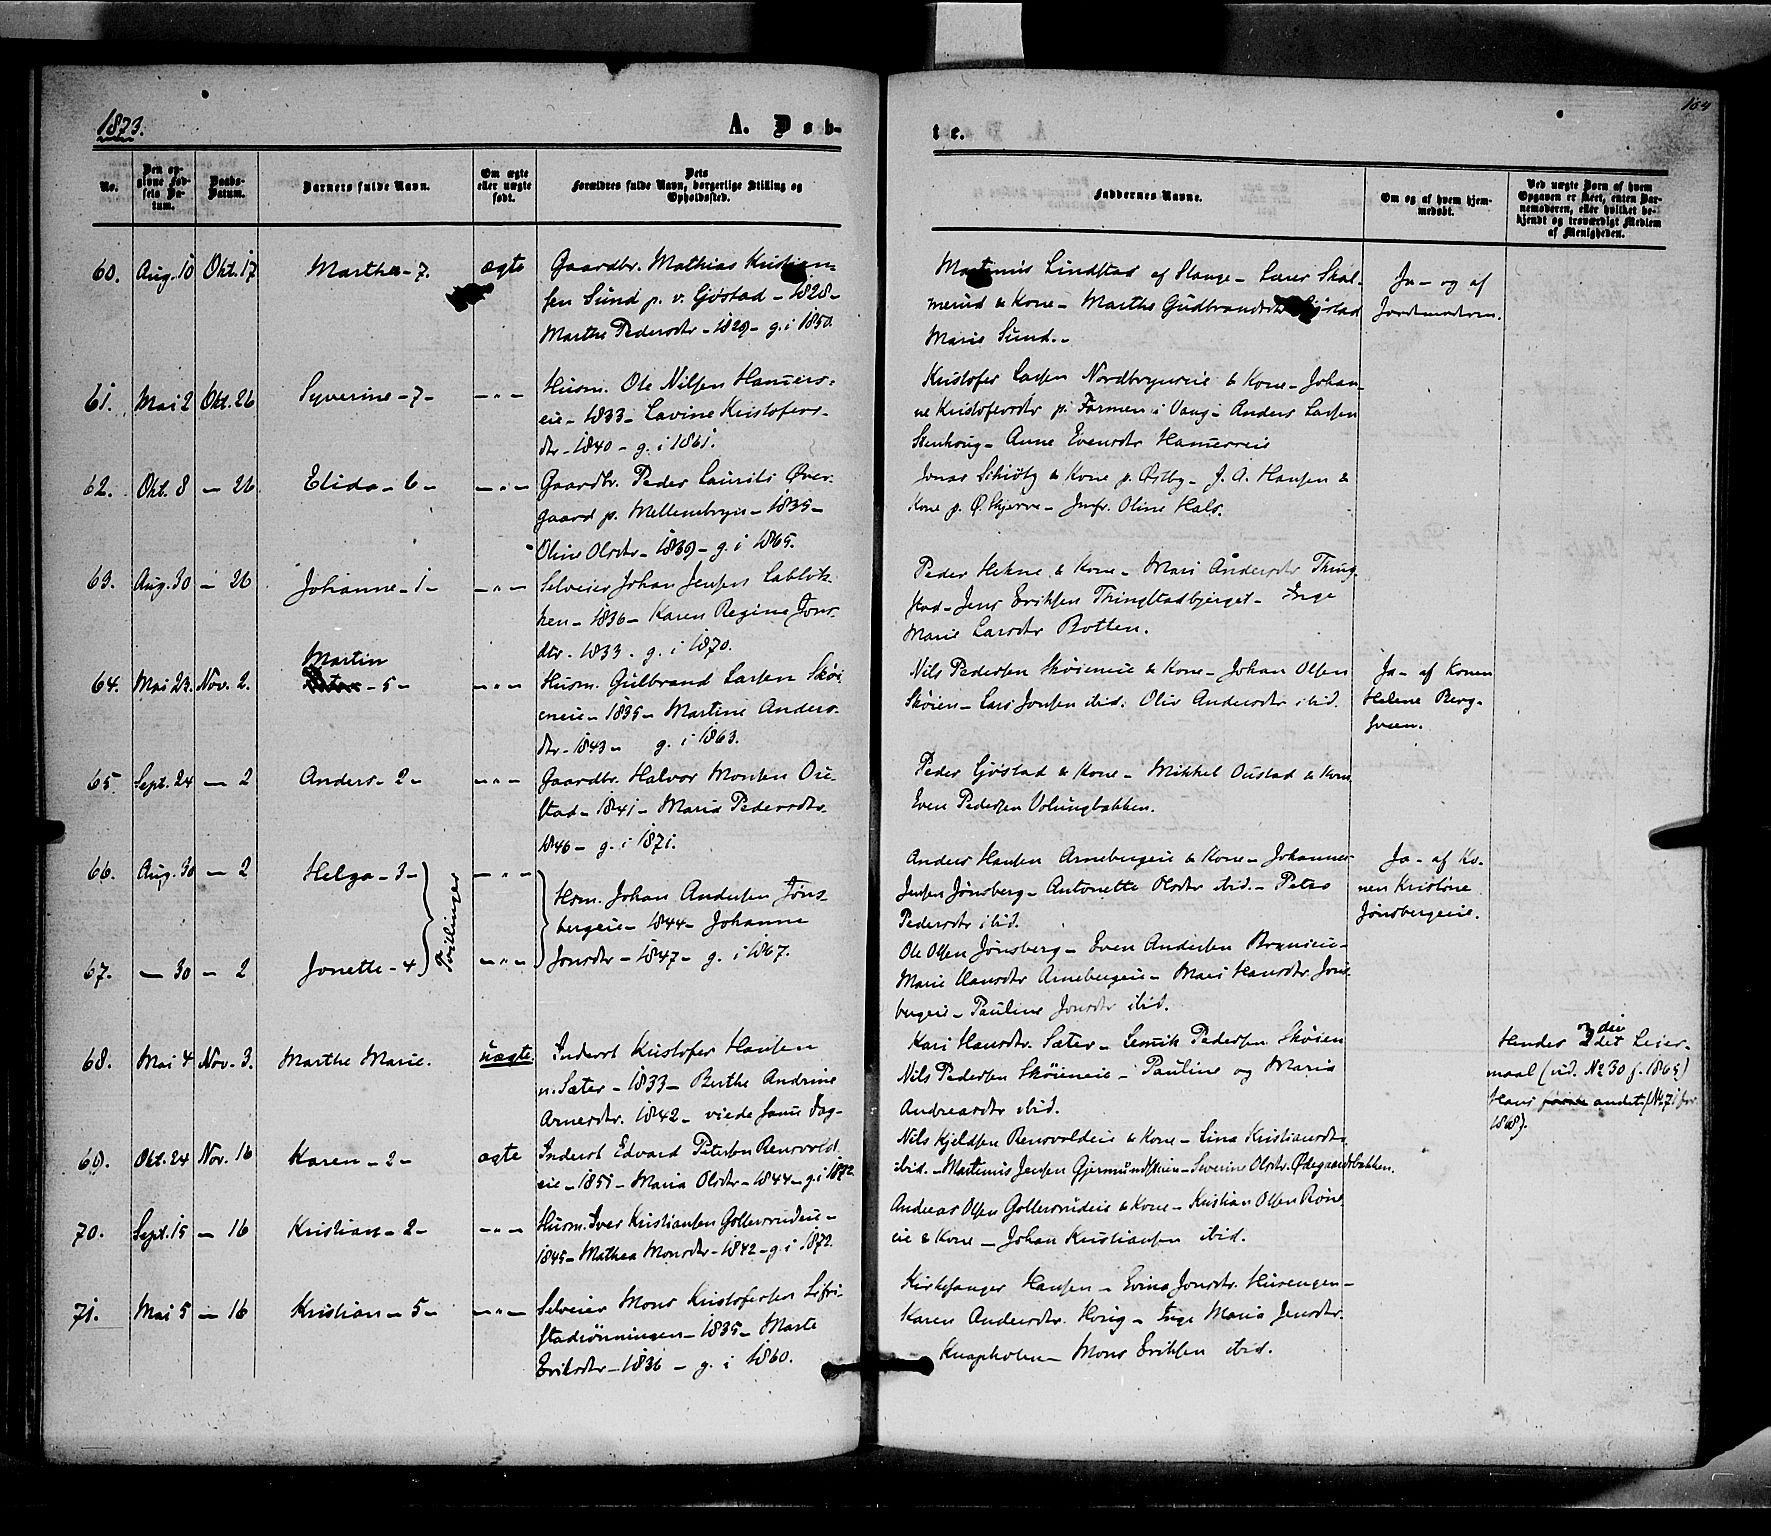 1873.
A. Døb-
te.
164
No.
Den op-
givne Fød-
sels Da-
tum.
Daabs-
Datum.
Barnets fulde Navn.
Om ægte
eller uægte
født.
Dets
Forældres fulde Navn, borgerlige Stilling og
Opholdssted.
Faddernes Navne.
Om og af hvem hjem-
medøbt.
Ved uægte Børn af hvem
Opgaven er skeet, enten Bar-
nemoderen, eller hvilket be-
kjendt og troværdigt Medlem
af Menigheden.
60. Aug. 10 Okt. 17 Marthe - 7. ægte Gaardbr. Mathias Kristian-
sen Sund p. v. Gjøstad - 1828 -
Marthe Pedersdtr - 1829 - g. i 1850.
Martinus Lindstad af Stange - Lærer Skal-
merud & Kone - Marthe Gudbrandsdtr Gjøstad
Marie Sund. -
Ja - og af
Jordmoderen.
61. Mai 2 Okt. 26 Syverine - 7 - - " - Husm. Ole Nilsen Hamers-
eie - 1833 - Lavine Kristofers-
dtr - 1840 - g. i 1861.
Kristofer Larsen Nordbyeneie & Kone - Johan-
ne Kristofersdtr p. Farmen i Vang - Anders Larsen
Stenhoug - Anne Evensdtr Hamerseie
62. Okt. 8 - 26 Elida - 6 - - " - Gaardbr. Peder Laurits Øver-
gaard p. Mellembyen - 1835 -
Oline Olsdtr - 1839 - g. i 1865.
Jonas Schiøtz & Kone p. Østby - J. A. Hansen &
Kone p. Ø. Skjerve - Jmfr. Oline Hals.
63. Aug. 30 - 26 Johanne - 1 - - " - Selveier Johan Jensen Lablik-
ken - 1836 - Karen Regine Jons-
dtr - 1833 - g. i 1870.
Peder Hekne & Kone - Mari Andersdtr Thing-
stad - Jens Eriksen Thingstadbjerget - Inge
Marie Larsdtr Botten.
64. Mai 23. Nov. 2. Martin - 5 - - " - Husm. Gulbrand Larsen Skøi-
eneie - 1835 - Martine Anders-
dtr - 1843 - g. i 1863.
Nils Pedersen Skøieneie & Kone - Johan Olsen
Skøien - Lars Jonsen ibid. Oliv Andersdtr ibid.
Ja - af Konen
Helene Berg-
sveen.
65. Sept. 24 - 2 Anders - 2 - - " - Gaardbr. Halvor Monsen Ou-
stad - 1841 - Maria Pedersdtr
1846 - g. i 1871.
Peder Gjøstad & Kone - Mikkel Oustad & Kone
Even Pedersen Volungbakken.
66. Aug. 30 - 2 Helga - 3 - - " -
Tvillinger
Hsm. Johan Andersen Jøns-
bergeie - 1844 - Johanne
Jonsdtr - 1847 - g. i 1867.
Anders Hansen Arnebergeie & Kone - Johannes
Jensen Jønsberg - Antonette Olsdtr ibid - Petra
Pedersdtr ibid.
Ja - af Ko-
nen Kristine
Jønsbergeie.
67. - 30 - 2 Jonette - 4 - " -
Ole Olsen Jønsberg - Even Andersen Bryneie -
Marie Hansdtr Arnebergeie - Mari Hansdtr Jøns-
bergeie - Pauline Jonsdtr ibid.
68. Mai 4 Nov. 3. Marthe Marie. uægte. Inderst Kristofer Hansen
u. Sæter - 1833 - Berthe Andrine
Arnesdtr. 1842 -
Kari Hansdtr. Sæter - Lensm. Pedersen Skøien
Nils Pedersen Skøieneie - Pauline og Maria
Andreasdtr ibid.
Hendes 3die Leier-
maal (vid. No 30 f. 1865)
Hans andet (No 71 for
1868).
69. Okt. 24 Nov. 16 Karen - 2 - ægte Inderst Edvard Petersen Rensvold-
eie - 1851 - Maria Olsdtr - 1844 - g. i 1872
Nils Kjeldsen Rensvoldeie & Kone - Lina Kristiansdtr
ibid. - Martinus Jensen Gjermundshien - Severine Olsdtr. Ødegaardsbakken.
70. Sept. 15 - 16 Kristian - 2 - - " - Husm. Iver Kristiansen Gollersrudeie -
1845 - Mathea Monsdtr - 1842 - g. i 1872.
Andreas Olsen Gollersrudeie & Kone - Kristian Olsen Røne-
eie & Kone - Johan Kristiansen ibid.
71. Mai 5 - 16 Kristian - 5 - - " - Selveier Mons Kristofersen Sifri-
stadrønningen - 1835 - Marte
Eriksdtr - 1836 - g. i 1860.
Kirkesanger Hansen - Evina Jonsdtr. Hisvengen -
Karen Andersdtr. Horig - Inge Maria Jensdtr.
Knapholen - Mons Eriksen ibid.